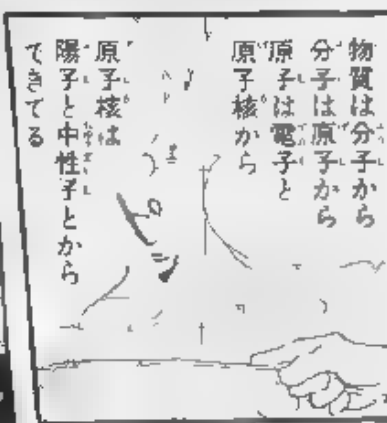 物質は分子から
分子は原子から
原子は電子と
原子核から
原子核は
陽子と中性子とから
できてる